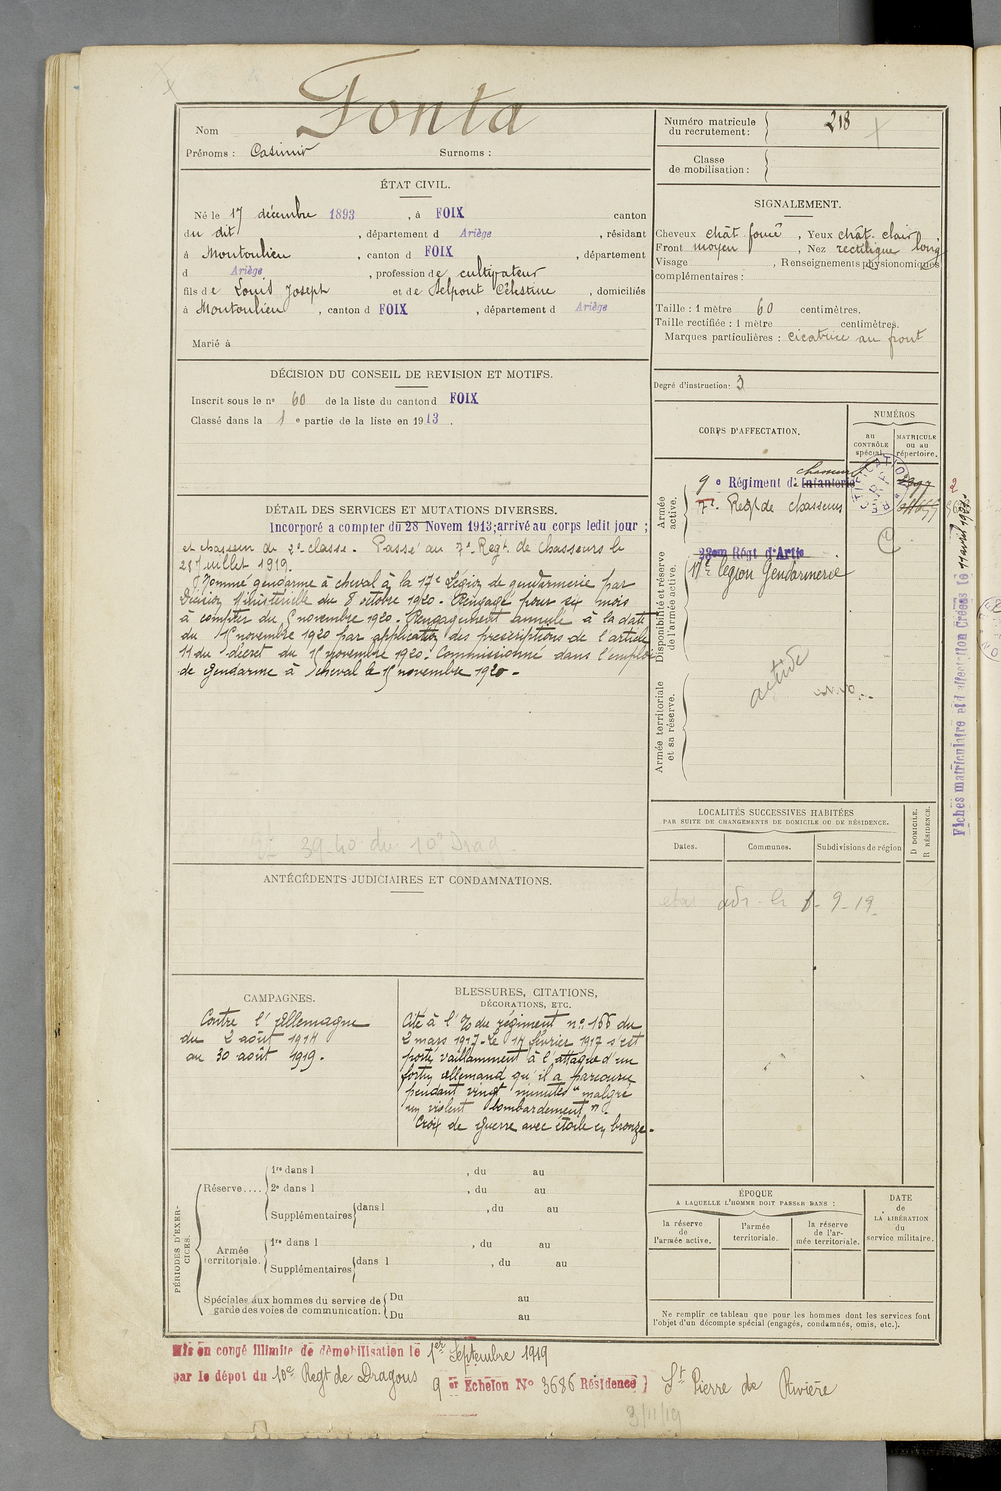 Nom Fonta
Prénoms : Casimir Surnoms :
Numéro matricule du recrutement : 218
Classe de mobilisation :
ÉTAT CIVIL.
Né le 17 décembre 1893, à FOIX canton
du dit, département d Ariège, résidant
à Montoulieu, canton d FOIX, département
d Ariège, profession de cultivateur
fils de Louis Joseph et de Delpont Célestine, domiciliés
à Montoulieu, canton d FOIX, département d Ariège
Marié à
SIGNALEMENT.
Cheveux chât foncé, Yeux chât. clair
Front moyen, Nez rectiligne long
Visage, Renseignements physionomiques
complémentaires :
Taille : 1 mètre 60 centimètres.
Taille rectifiée : 1 mètre centimètres.
Marques particulières : cicatrice au front
Degré d'instruction : 3
DÉCISION DU CONSEIL DE REVISION ET MOTIFS.
Inscrit sous le nº 60 de la liste du canton d FOIX
Classé dans la 1 e partie de la liste en 1913.
DÉTAIL DES SERVICES ET MUTATIONS DIVERSES.
Incorporé a compter du 28 Novem 1913; arrivé au corps ledit jour ;
et chasseur de 2e classe. Passé au 7e Regt. de chasseurs le
Juillet 1919.
Nommé gendarme à cheval à la 17e Légion de gendarmerie par
Décision Ministérielle du 8 octobre 1920. Rengagé pour six mois
à compter du novembre 1920. Rengagement annulé à la date
du novembre 1920 par application des prescriptions de l'article
11 du décret du novembre 1920. Commissionné dans l'emploi
de gendarme à cheval le novembre 1920.
39-40 du 10e Drag
CORPS D'AFFECTATION.
NUMÉROS
au CONTRÔLE spécial.
MATRICULE ou au répertoire.
Armée active.
chasseurs
9e Régiment d'Infanterie
7e Regt de chasseurs
Disponibilité et réserve de l'armée active.
23em Régt d'Artie
17e légion Gendarmerie
Armée territoriale et sa réserve.
active
Fiches matriculaire et d'affectation Créées le 11 avril
LOCALITÉS SUCCESSIVES HABITÉES
PAR SUITE DE CHANGEMENTS DE DOMICILE OU DE RÉSIDENCE.
Dates.
Communes.
Subdivisions de région
D DOMICILE.
R RÉSIDENCE.
9-19
ANTÉCÉDENTS JUDICIAIRES ET CONDAMNATIONS.
CAMPAGNES.
Contre l'Allemagne
du 2 août 1914
au 30 août 1919.
BLESSURES, CITATIONS,
DÉCORATIONS, ETC.
Cité à l'O/ du régiment nº 166 du
2 mars 1917 - Le 14 février 1917 s'est
porté vaillamment à l'attaque d'un
fortin allemand qu'il a parcouru
pendant vingt minutes "malgré
un violent bombardement".
Croix de guerre avec étoile en bronze.
PÉRIODES D'EXERCICES.
Réserve....
1re dans l, du au
2e dans l, du au
Supplémentaires dans l, du au
Armée territoriale.
1re dans l, du au
Supplémentaires dans l, du au
Spéciales aux hommes du service de
garde des voies de communication.
Du au
Du au
ÉPOQUE
A LAQUELLE L'HOMME DOIT PASSER DANS :
la réserve de l'armée active.
l'armée territoriale.
la réserve de l'armée territoriale.
DATE de LA LIBÉRATION du service militaire.
Ne remplir ce tableau que pour les hommes dont les services font
l'objet d'un décompte spécial (engagés, condamnés, omis, etc.).
Mis en congé illimité de démobilisation le 1er Septembre 1919
par le dépot du 10e Regt de Dragons 9 er Echelon Nº 3686 Résidence } St Pierre de Rivière
3/11/19